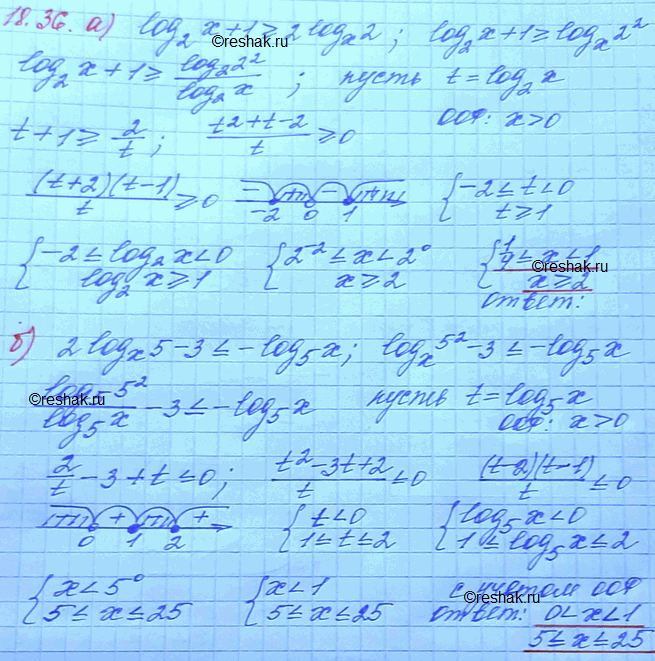 18.36. а) log₂x+1≥2logₓ2; log₂x+1≥logₓ2²
©reshak.ru
log₂x+1≥ log₂2²/log₂x; пусть t=log₂x
ООФ: x>0
t+1≥ 2/t; (t2+t-2)/t ≥0
(t+2)(t-1)/t ≥0 - + - + -2 0 1 { -2≤t<0 t≥1
{ -2≤log₂x<0 log₂x≥1 { 2⁻²≤x<2⁰ x≥2 { 1/4≤x<1 x≥2
©reshak.ru
ответ:
б) 2logₓ5-3≤-log₅x; logₓ5²-3≤-log₅x
log₅5²/log₅x -3≤-log₅x пусть t=log₅x
©reshak.ru
ООФ: x>0
2/t -3+t≤0; (t²-3t+2)/t ≤0 (t-2)(t-1)/t ≤0
+ + 0 1 2 { t<0 1≤t≤2 { log₅x<0 1≤log₅x≤2
{ x<5⁰ 5≤x≤25 { x<1 5≤x≤25 с учетом ООФ
ответ: 0<x<1
©reshak.ru
5≤x≤25